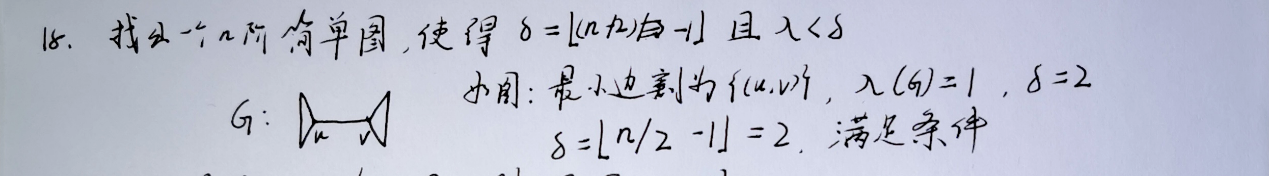 18. 找出一个n阶简单图,使得 δ=⌊(n/2)-1⌋ 且 λ<δ
如图:最小边割为{(u,v)}, λ(G)=1, δ=2
G: u v
δ=⌊n/2 -1⌋=2. 满足条件